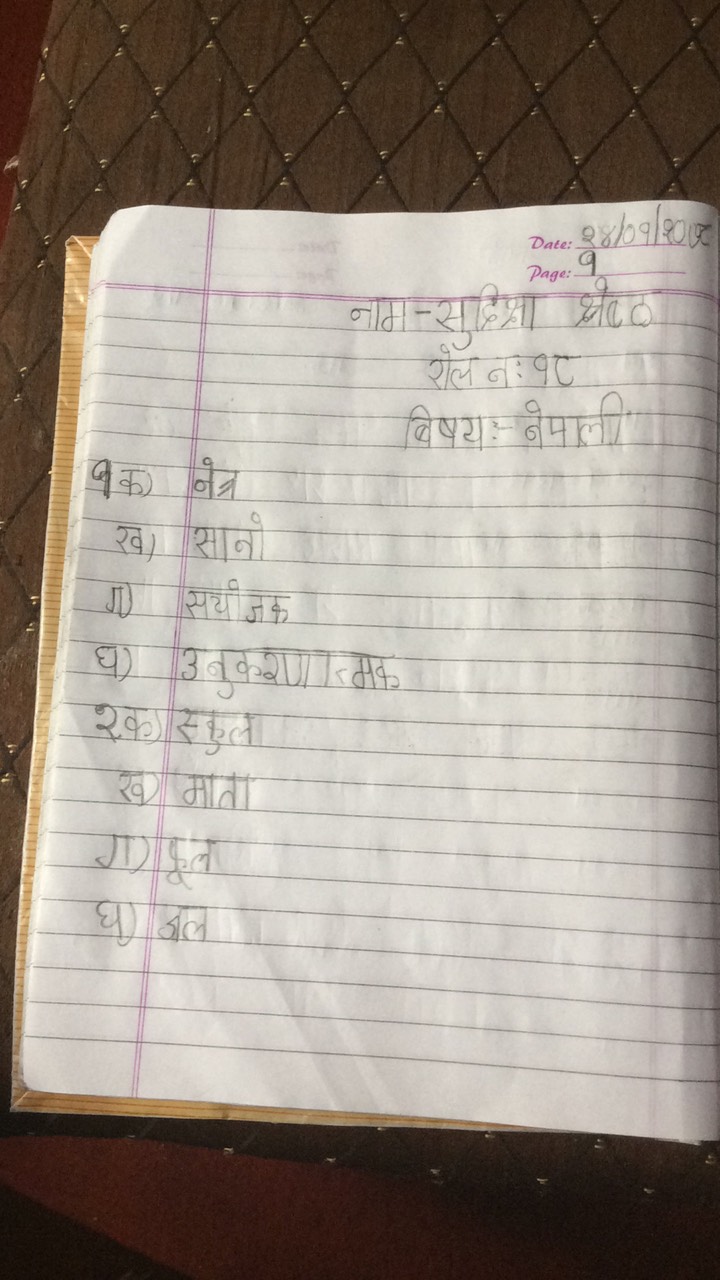 Date: २४/०१/२०७८
Page: १
नाम-सुदिक्षा श्रेष्ठ
रोल नः १८
बिषयः- नेपाली
१क) नेत्र
ख) सानो
ग) सयोजक
घ) उनुकरणात्मक
२क) स्कुल
ख) माता
ग) फूल
घ) जल